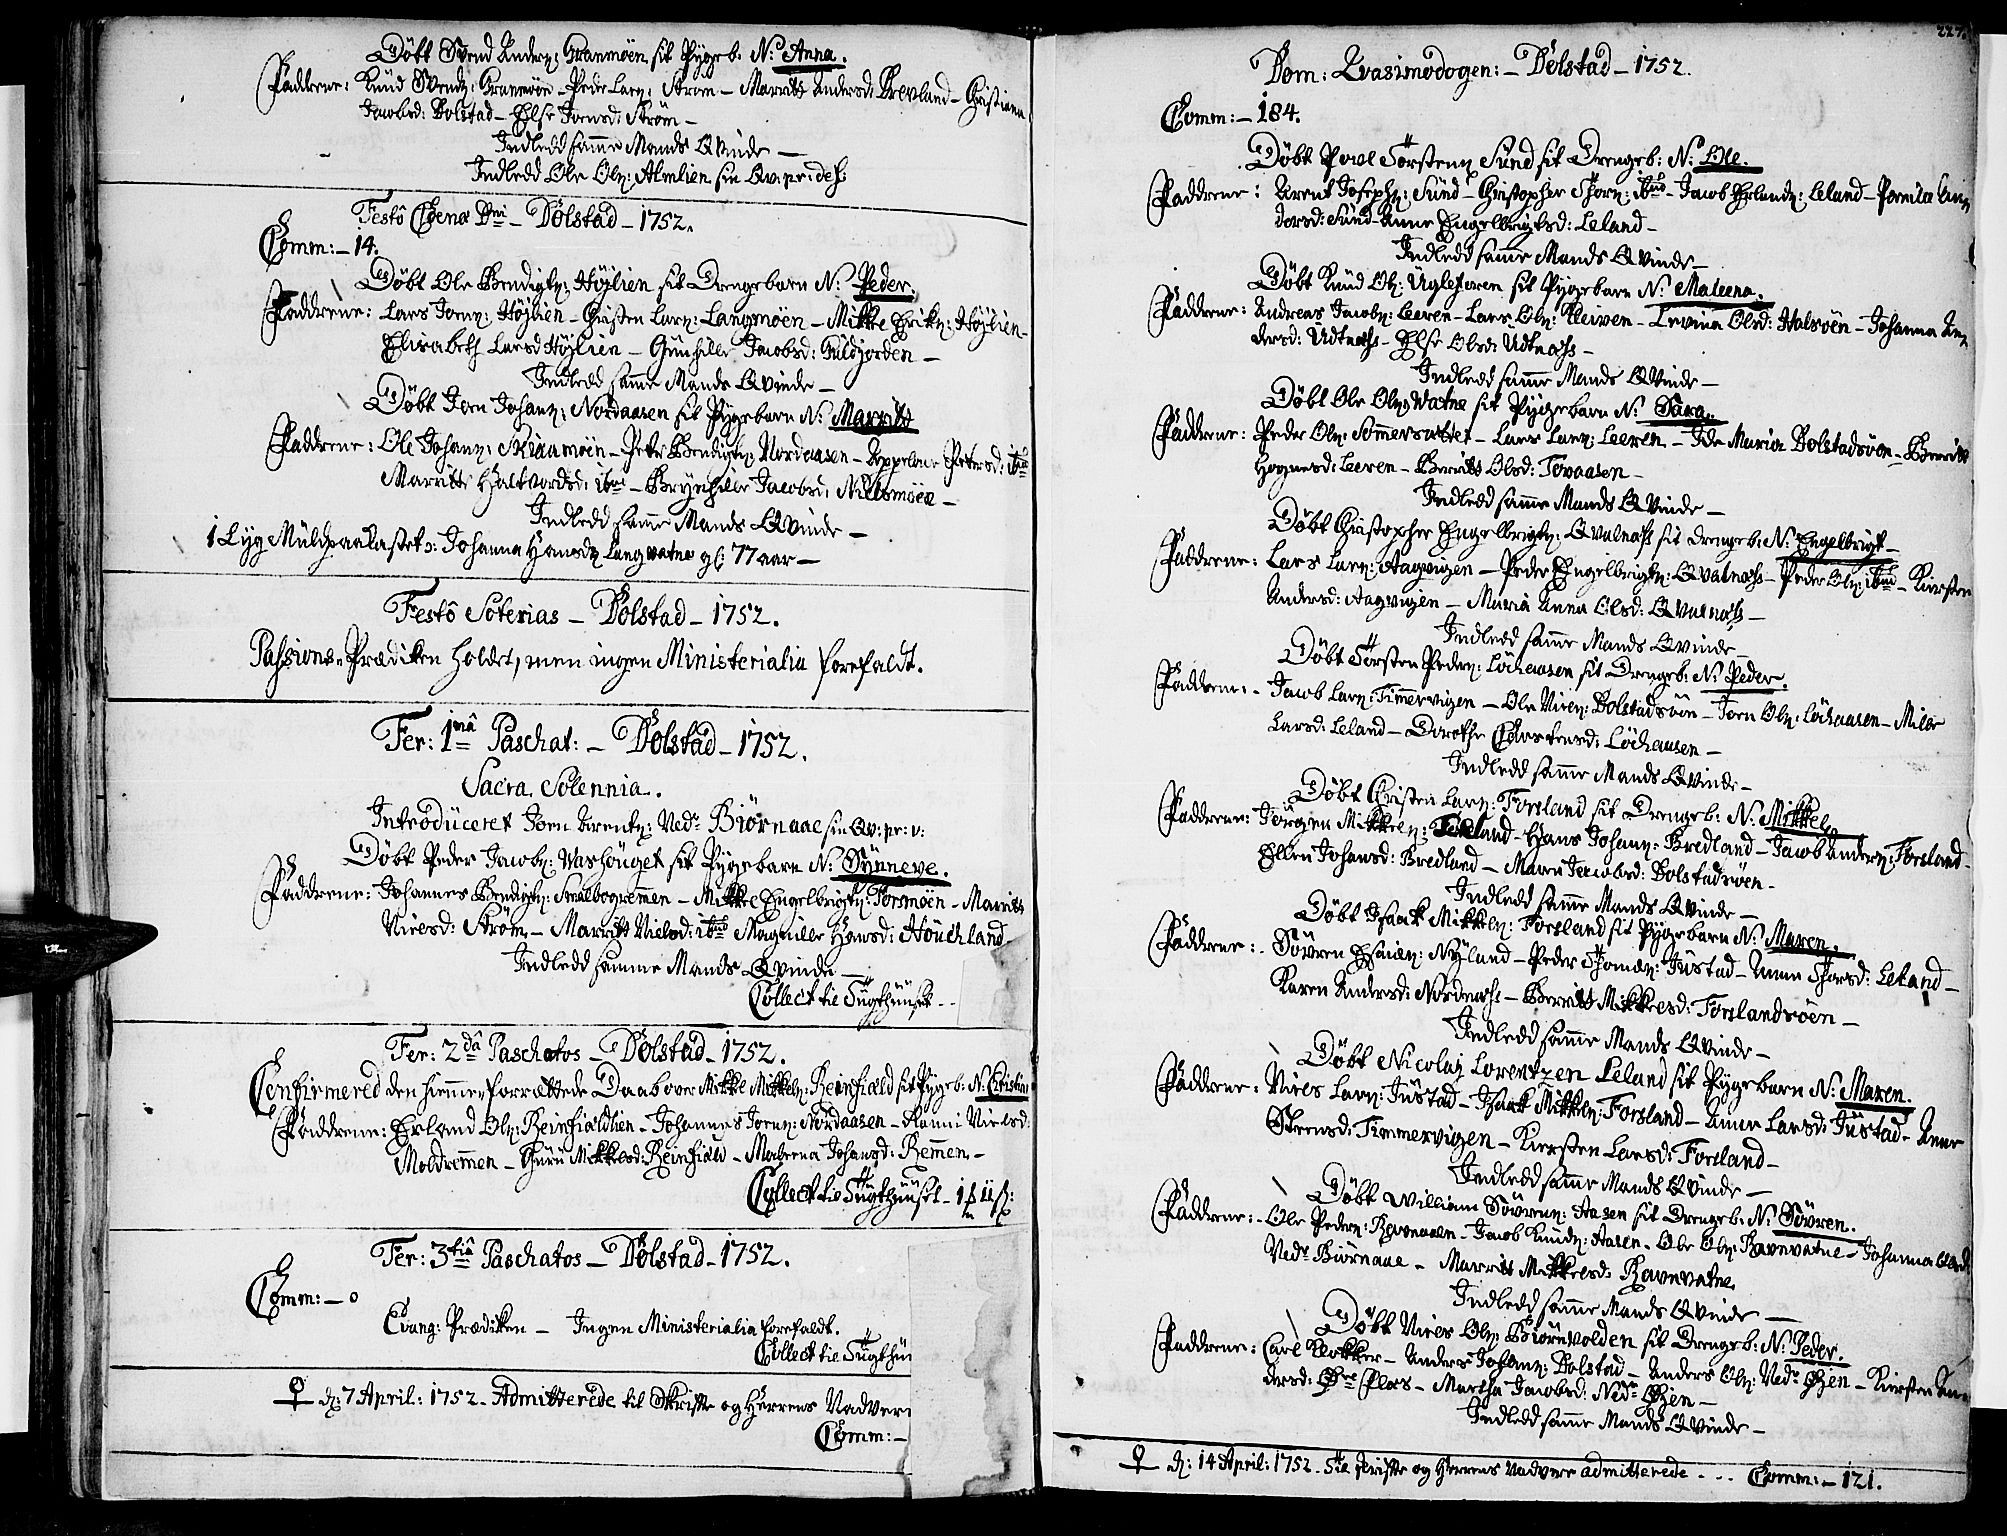 Döbt Svend Anders: Granmöen sit Pygeb: N: Anna.
Faddrene: Knud Svends: Granmöen – Peder Lars: Strøm – Marritt Andersd: Brevland – Christianna
Jacobsd: Dolstad – Else Jonsd: Ström –
Indledd samme Mands Qvinde –
Indledd Ole Ols: Almlien sin Qv: pr: def:
Festô Coenæ Dni – Dolstad – 1752.
Comm: – 14.
Döbt Ole Bendigts: Höjlien sit Drengebarn N: Peder.
Faddrene: Lars Jons: Höjlien – Christen Lars: Langmöen – Mikkel Eriks: Höjlien –
Elisabeth Larsd Höjlien – Gunhille Jacobsd: Guldjorden –
Indledd samme Mands Qvinde –
Döbt Jon Johans: Nordaasen sit Pygebarn N: Marritt
Faddrene: Ole Johans: Skiaamöen – Peter Bendigts: Nordaasen – Appelone Petersd: ibid
Marritt Halvordsd: ibid – Brynhille Jacobsd: Nillsmöen –
Indledd samme Mands Qvinde –
1 Lyg Muldpaakastet: Johanna Hansd: Langvatne gl: 77 aar –
Festô Soterias – Dolstad – 1752.
Passions-Prædiken holdet, men ingen Ministerialia forefaldt.
Fer: 1mâ Paschat: – Dolstad – 1752.
Sacra Solennia.
Introduceret Jon Arents: Neds Biörnaae sin Qv: pr: v:
Döbt Peder Jacobs: Washöuget sit Pygebarn N: Synneve.
Faddrene: Johannes Bendigts: Smalbogremmen – Mikkel Engelbrigts: Forsmöen – Marritt
Nielsd: Ström – Marritt Nielsd: ibid Magnille Hansd: Höuchland
Indledd samme Mands Qvinde –
Collect til Tugthuuset –
Fer: 2dâ Paschatos – Dolstad – 1752.
Confirmered den hiemme-forrættede Daab over Mikkel Mikkels: Reinfiæld sit Pygeb: N: Christian
Faddrene: Erland Ols: Reinfiældlien – Johannes Jons: Nordaasen – Ranni Nielsd:
Moldremmen – Guru Mikkelsd: Reinfiæld – Maleena Johansd: Remmen –
Collect til Tugthuuset – 1
Fer: 3tiâ Paschatos – Dolstad – 1752.
Comm: – 0
Evang: Prædiken – Ingen Ministerialia forefaldt.
Collect til Tugthuu
♀ d: 7 April: 1752. Admitterede til Skrifte og Herrens Nadvere
Comm: –
227.
Dom: Qvasimodogen: – Dolstad – 1752.
Comm: – 184.
Döbt Povel Torstens Sund sit Drengeb: N: Ole.
Faddrene: Arent Josephs: Sund – Christopher Thors: ibid – Jacob Erlands: Leland – Pernilla An
dersd: Sund – Anne Engelbrigtsd: Leland –
Indledd samme Mands Qvinde –
Döbt Knud Ols: Uglefioren sit Pygebarn N: Maleena.
Faddrene: Andreas Jacobs: Leeren – Lars Ols: Kleiven – Lovina Olsd: Halsöen – Johanna An
dersd: Udtnæss – Else Olsd: Udtnæss –
Indledd samme Mands Qvinde –
Döbt Ole Ols: Watne sit Pygebarn N: Sara.
Faddrene: Peder Ols: Sommersættet – Lars Lars: Leeren – Ide Maria Dolstadsöen – Berritt
Hognesd: Leeren – Berritt Olsd: Tovaasen –
Indledd samme Mands Qvinde –
Döbt Christopher Engelbrigts: Qvalnæss sit Drengeb: N: Engelbrigt –
Faddrene: Lars Lars: Aagvigen – Peder Engelbrigts: Qvalnæss – Peder Ols: ibid – Kiersten
Andersd: Aagvigen – Maria Anna Olsd: Qvalnæss –
Indledd samme Mands Qvinde –
Döbt Torsten Peders: Löchaasen sit Drengeb: N: Peder.
Faddrene: – Jacob Lars: Timmervigen – Ole Niels: Dolstadsöen – Jon Ols: Löchaasen – Mille
Larsd: Leland – Dorothe Carstensd: Löchaasen –
Indledd samme Mands Qvinde –
Döbt Christen Lars: Forsland sit Drengeb: N: Mikkel.
Faddrene: Jörgen Mikkels: Forsland – Hans Johans: Bredland – Jacob Anders: Forsland –
Ellen Johansd: Bredland – Maren Jacobsd: Dolstadsöen –
Indledd samme Mands Qvinde –
Döbt Isaak Mikkels: Forsland sit Pygebarn N: Maren.
Faddrene: – Sövren Esaias: Nyland – Peder Thomæs: Justad – Anne Thorsd: Leland –
Karen Andersd: Nordnæss – Berritt Mikkelsd: Forslandsöen –
Indledd samme Mands Qvinde –
Döbt Nicolaj Lorentzen Leland sit Pygebarn N: Maren.
Faddrene: Niels Lars: Justad – Isaak Mikkels: Forsland – Anne Larsd: Justad – Anne
Steensd: Timmervigen – Kiersten Larsd: Forsland –
Indledd samme Mands Qvinde –
Döbt William Sövrens: Aasen sit Drengeb: N: Sövren.
Faddrene: – Ole Peders: Ravnaaen – Jacob Knuds: Aasen – Ole Ols: Ravnvatne – Johanna
Neds Biörnaae – Marritt Mikkelsd: Ravnvatne
Indledd samme Mands Qvinde –
Döbt Niels Ols: Biörnvolden sit Drengeb: N: Peder.
Faddrene: Carl Klokker – Anders Johans: Dolstad – Anders Ols: Neds Öjen – Kiersten An
dersd: Öre Plads – Martha Jacobsd: Neds Öjen –
Indledd samme Mands Qvinde –
♀ d: 14 April: 1752. Til skrifte og Herrens Nadvere admitterede – – – Comm: – 121.